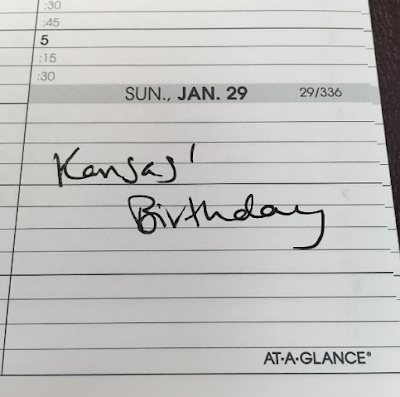 :30
:45
5
:15
:30
SUN., JAN. 29 29/336
Kansas'
Birthday
AT-A-GLANCE®